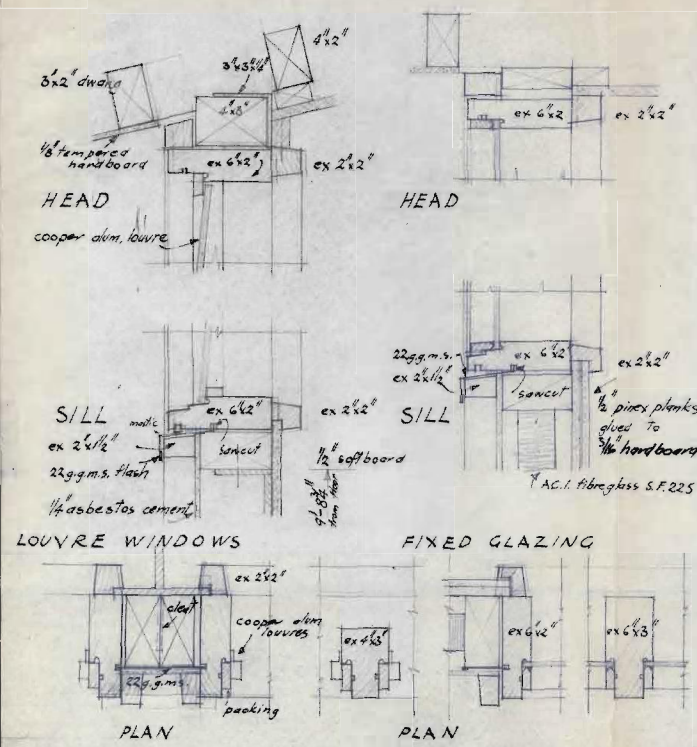 4"x2"
3"x3"x¼"
3"x2" dwang
4"x3"
⅛" tempered
hardboard
ex 6"x2"
ex 2"x2"
HEAD
cooper alum. louvre
ex 6"x2
ex 2"x2"
HEAD
SILL
mastic
ex 6"x2"
ex 2"x2"
ex 2"x1½"
sawcut
22g.g.m.s. flash
½" softboard
¼" asbestos cement
from floor
22g.g.m.s.
ex 6"x2"
ex 2"x1½"
ex 2"x2"
sawcut
SILL
½" pinex planks
glued to
3/16" hardboard
A.C.I. fibreglass S.F. 225
LOUVRE WINDOWS
FIXED GLAZING
ex 2"x2"
cleat
cooper alum
louvres
22g.g.m.s.
packing
ex 4"x3"
PLAN
ex 6"x2"
ex 6"x3"
PLAN